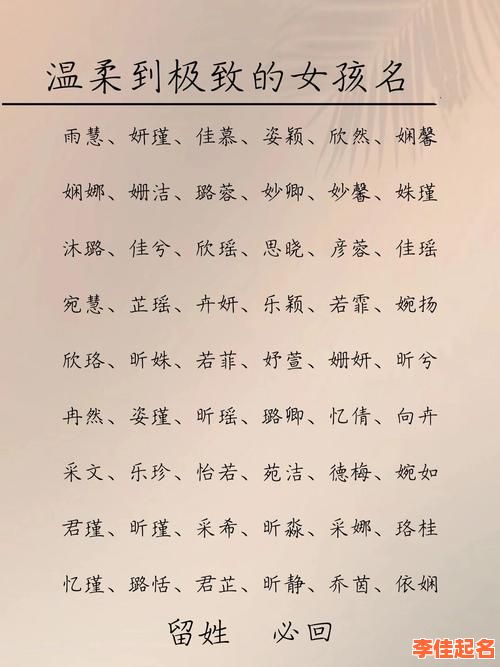 温柔到极致的女孩名
雨慧、妍瑾、佳慕、姿颖、欣然、娴馨
娴娜、姗洁、璐蓉、妙卿、妙馨、姝瑾
沐璐、佳兮、欣瑶、思晓、彦蓉、佳瑶
宛慧、芷瑶、卉妍、乐颖、若霏、婉扬
欣珞、昕姝、若菲、妤萱、姗妍、昕兮
冉然、姿瑾、昕瑶、璐卿、忆倩、向卉
采文、乐珍、怡若、苑洁、德梅、婉如
君瑾、昕瑾、采希、昕淼、采娜、珞桂
忆瑾、璐恬、君芷、昕静、乔茵、依娴
留姓 必回
李佳起名